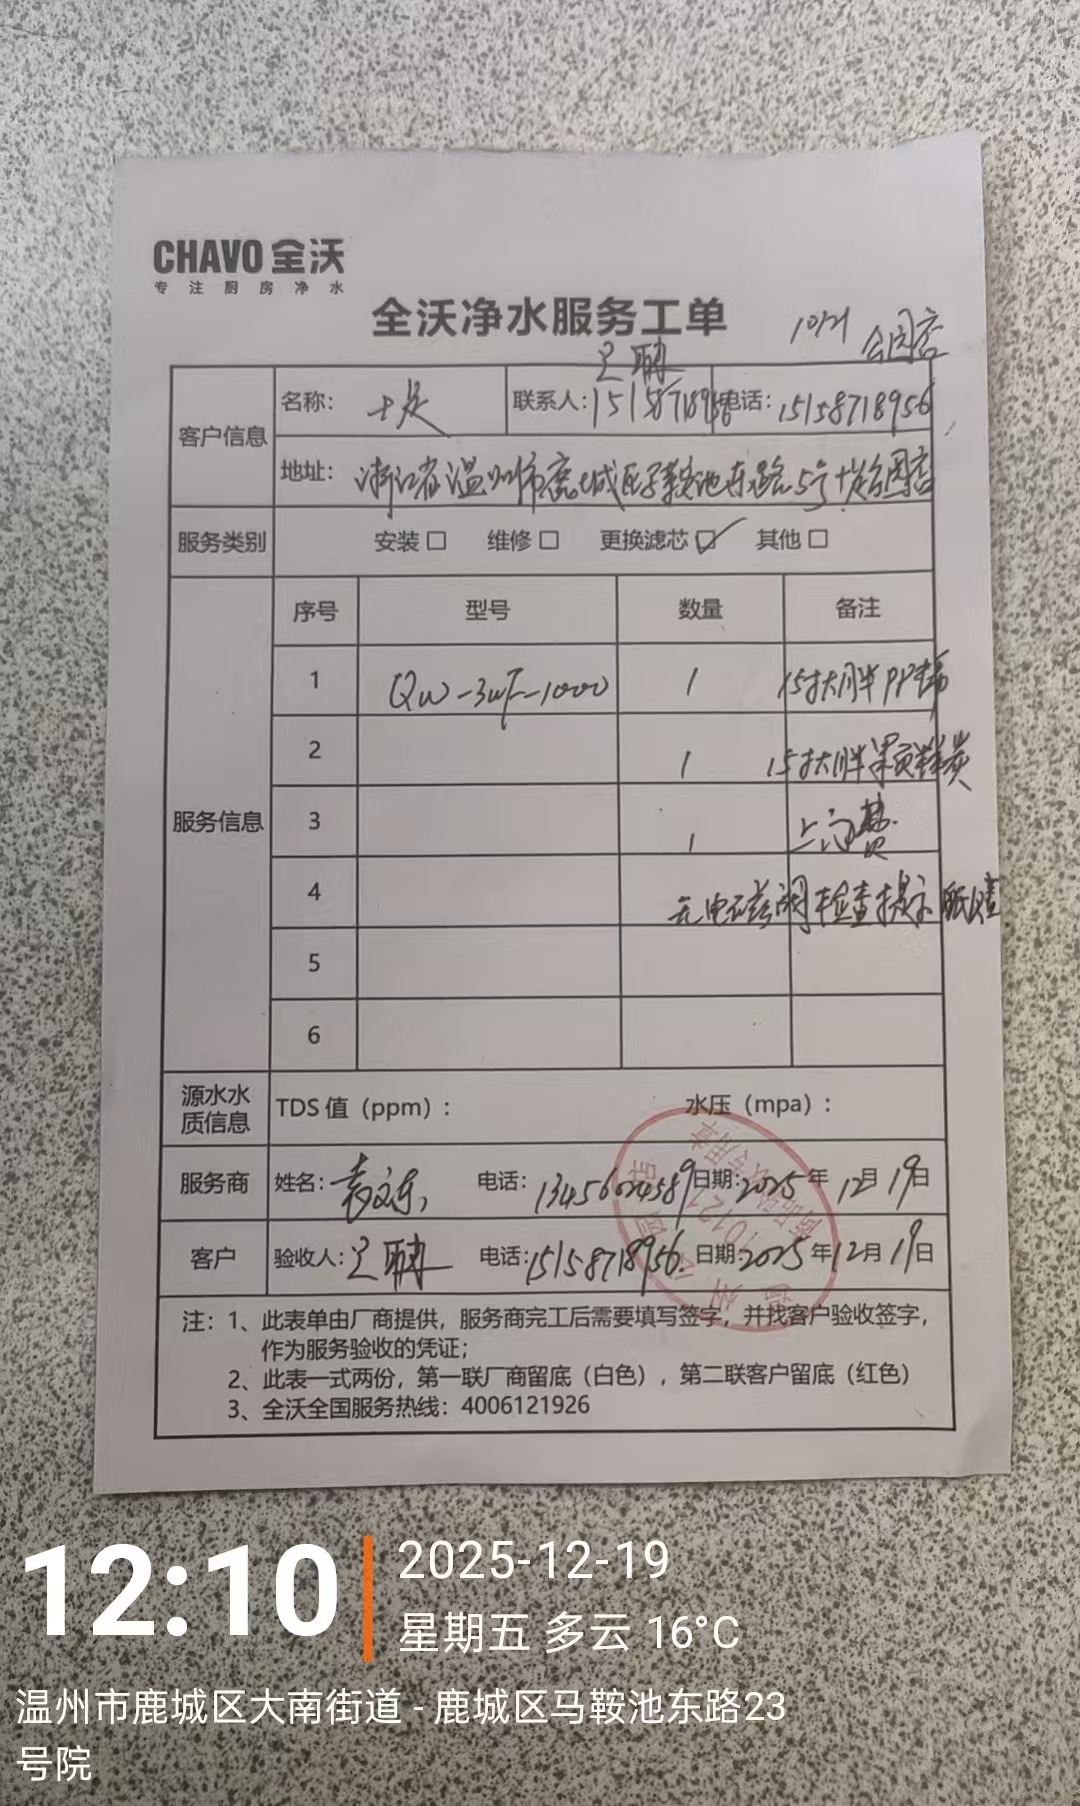 CHAVO 全沃
专注厨房净水
全沃净水服务工单
10121 公园店
客户信息
名称: 联系人: 15158718956 电话: 15158718956
地址: 浙江省温州市鹿城区马鞍池东路5号 公园店
服务类别 安装□ 维修□ 更换滤芯☑ 其他□
序号 型号 数量 备注
服务信息
1 QW-3UF-1000 1 15寸大胖PP棉
2 1 15寸大胖颗粒炭
3 1 上门费
4 无电磁阀 检查提示
5
6
源水水质信息
TDS 值（ppm）: 水压（mpa）:
服务商 姓名: 电话: 13456024589 日期: 2025年12月19日
客户 验收人: 电话: 15158718956. 日期: 2025年12月19日
注: 1、此表单由厂商提供，服务商完工后需要填写签字，并找客户验收签字，
作为服务验收的凭证；
2、此表一式两份，第一联厂商留底（白色），第二联客户留底（红色）
3、全沃全国服务热线: 4006121926
12:10
2025-12-19
星期五 多云 16°C
温州市鹿城区大南街道 - 鹿城区马鞍池东路23
号院